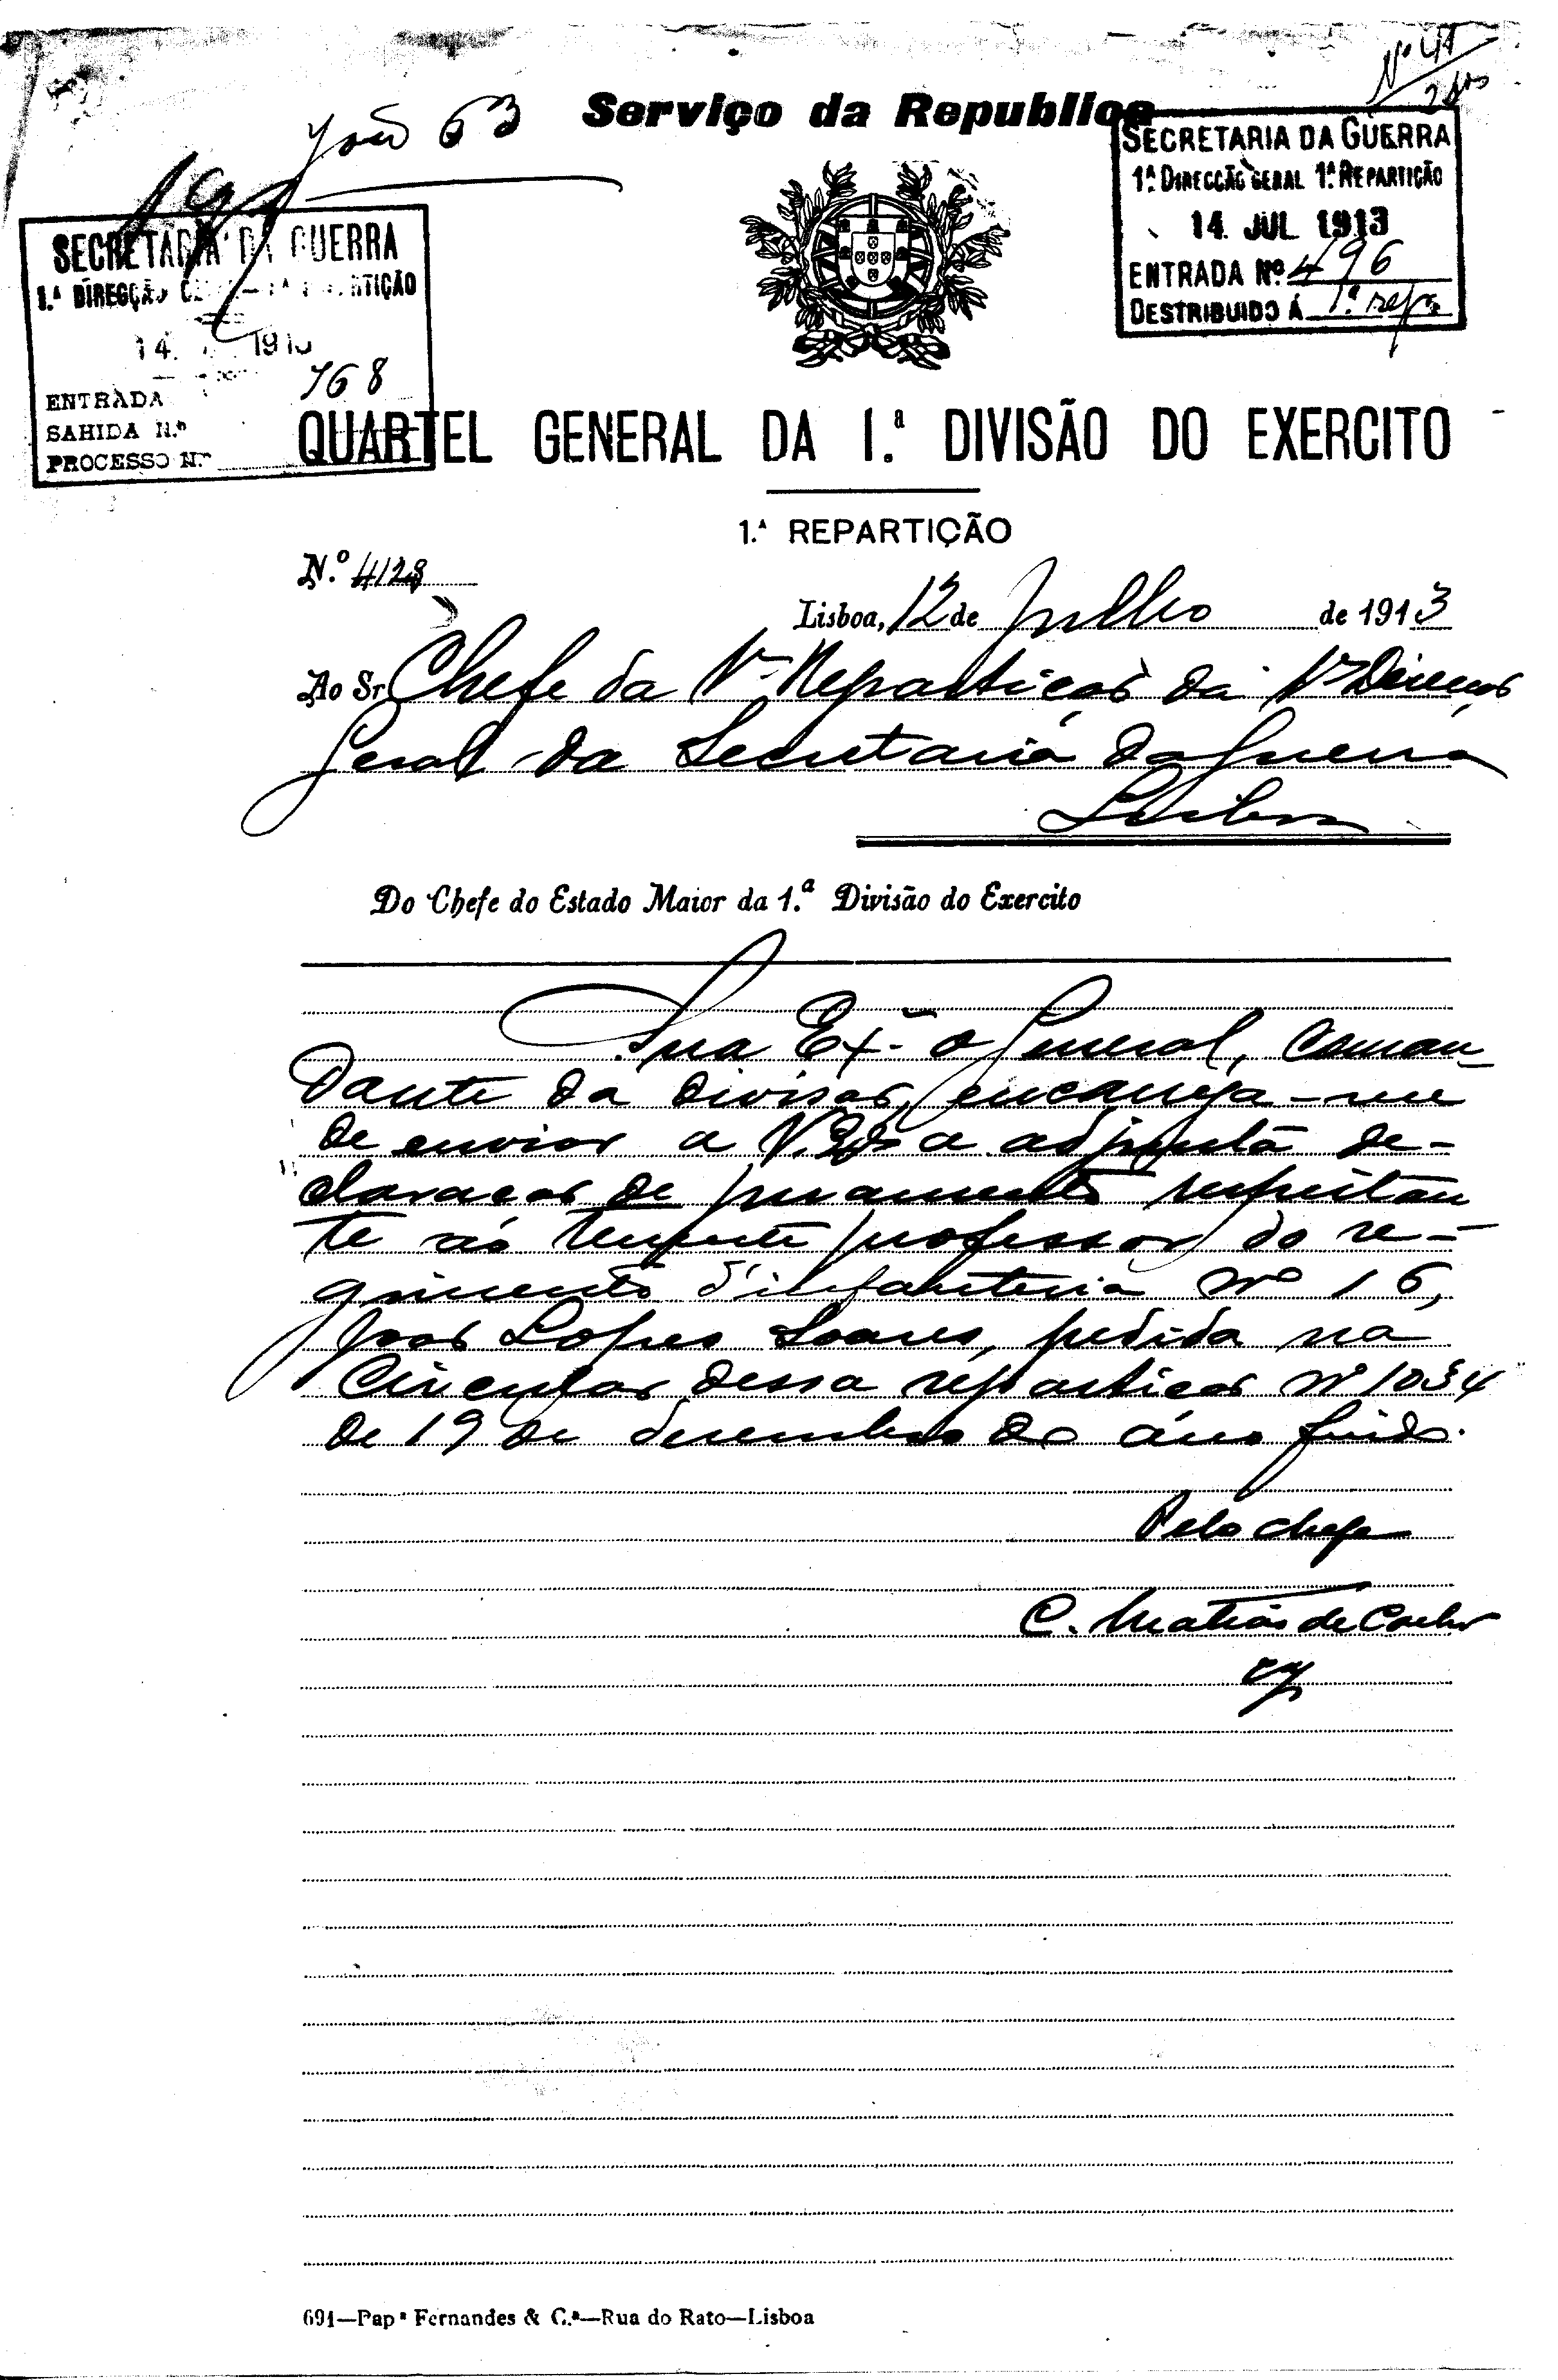 Nº 41
João 63
Serviço da Republica
SECRETARIA DA GUERRA
1ª DIRECÇÃO GERAL 1ª REPARTIÇÃO
14. JUL 1913
ENTRADA Nº 496
DESTRIBUIDO Á 1.ª repa
SECRETARIA DA GUERRA
1.ª DIRECÇÃO
14. 191
768
ENTRADA
SAHIDA N.º
PROCESSO N.º
QUARTEL GENERAL DA 1.ª DIVISÃO DO EXERCITO
1.ª REPARTIÇÃO
N.º 4128
Lisboa, 12 de Julho de 1913
Ao Sr. Chefe da 1ª Repartição da 1ª Direcção
Geral da Secretaria da Guerra
Lisboa
Do Chefe do Estado Maior da 1.ª Divisão do Exercito
Sua Exª o General, coman-
dante da divisão, encarrega-me
de enviar a V. Exª a adjunta de-
claração de juramento respeitan
te ao tenente professor do re-
gimento d'infanteria nº 16,
João Lopes Soares, pedida na
Circular dessa repartição nº 1034
de 19 de desembro do áno findo.
Pelo chefe
C. Matias de Castro
691—Papª Fernandes & C.ª—Rua do Rato—Lisboa